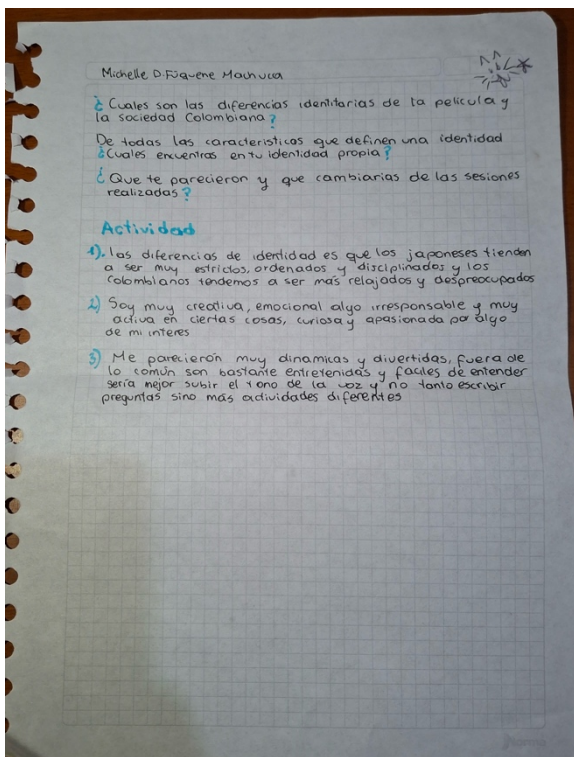 Michelle D. Fúquene Machuca
¿Cuales son las diferencias identitarias de la pelicula y
la sociedad Colombiana?
De todas las caracteristicas que definen una identidad
¿Cuales encuentras en tu identidad propia?
¿Que te parecieron y que cambiarias de las sesiones
realizadas?
Actividad
1). las diferencias de identidad es que los japoneses tienden
a ser muy estrictos, ordenados y disciplinados y los
Colombianos tendemos a ser más relajados y despreocupados
2) Soy muy creativa, emocional algo irresponsable y muy
activa en ciertas cosas, curiosa y apasionada por algo
de mi interes
3) Me parecierón muy dinamicas y divertidas, fuera de
lo común son bastante entretenidas y faciles de entender
sería mejor subir el tono de la voz y no tanto escribir
preguntas sino más actividades diferentes